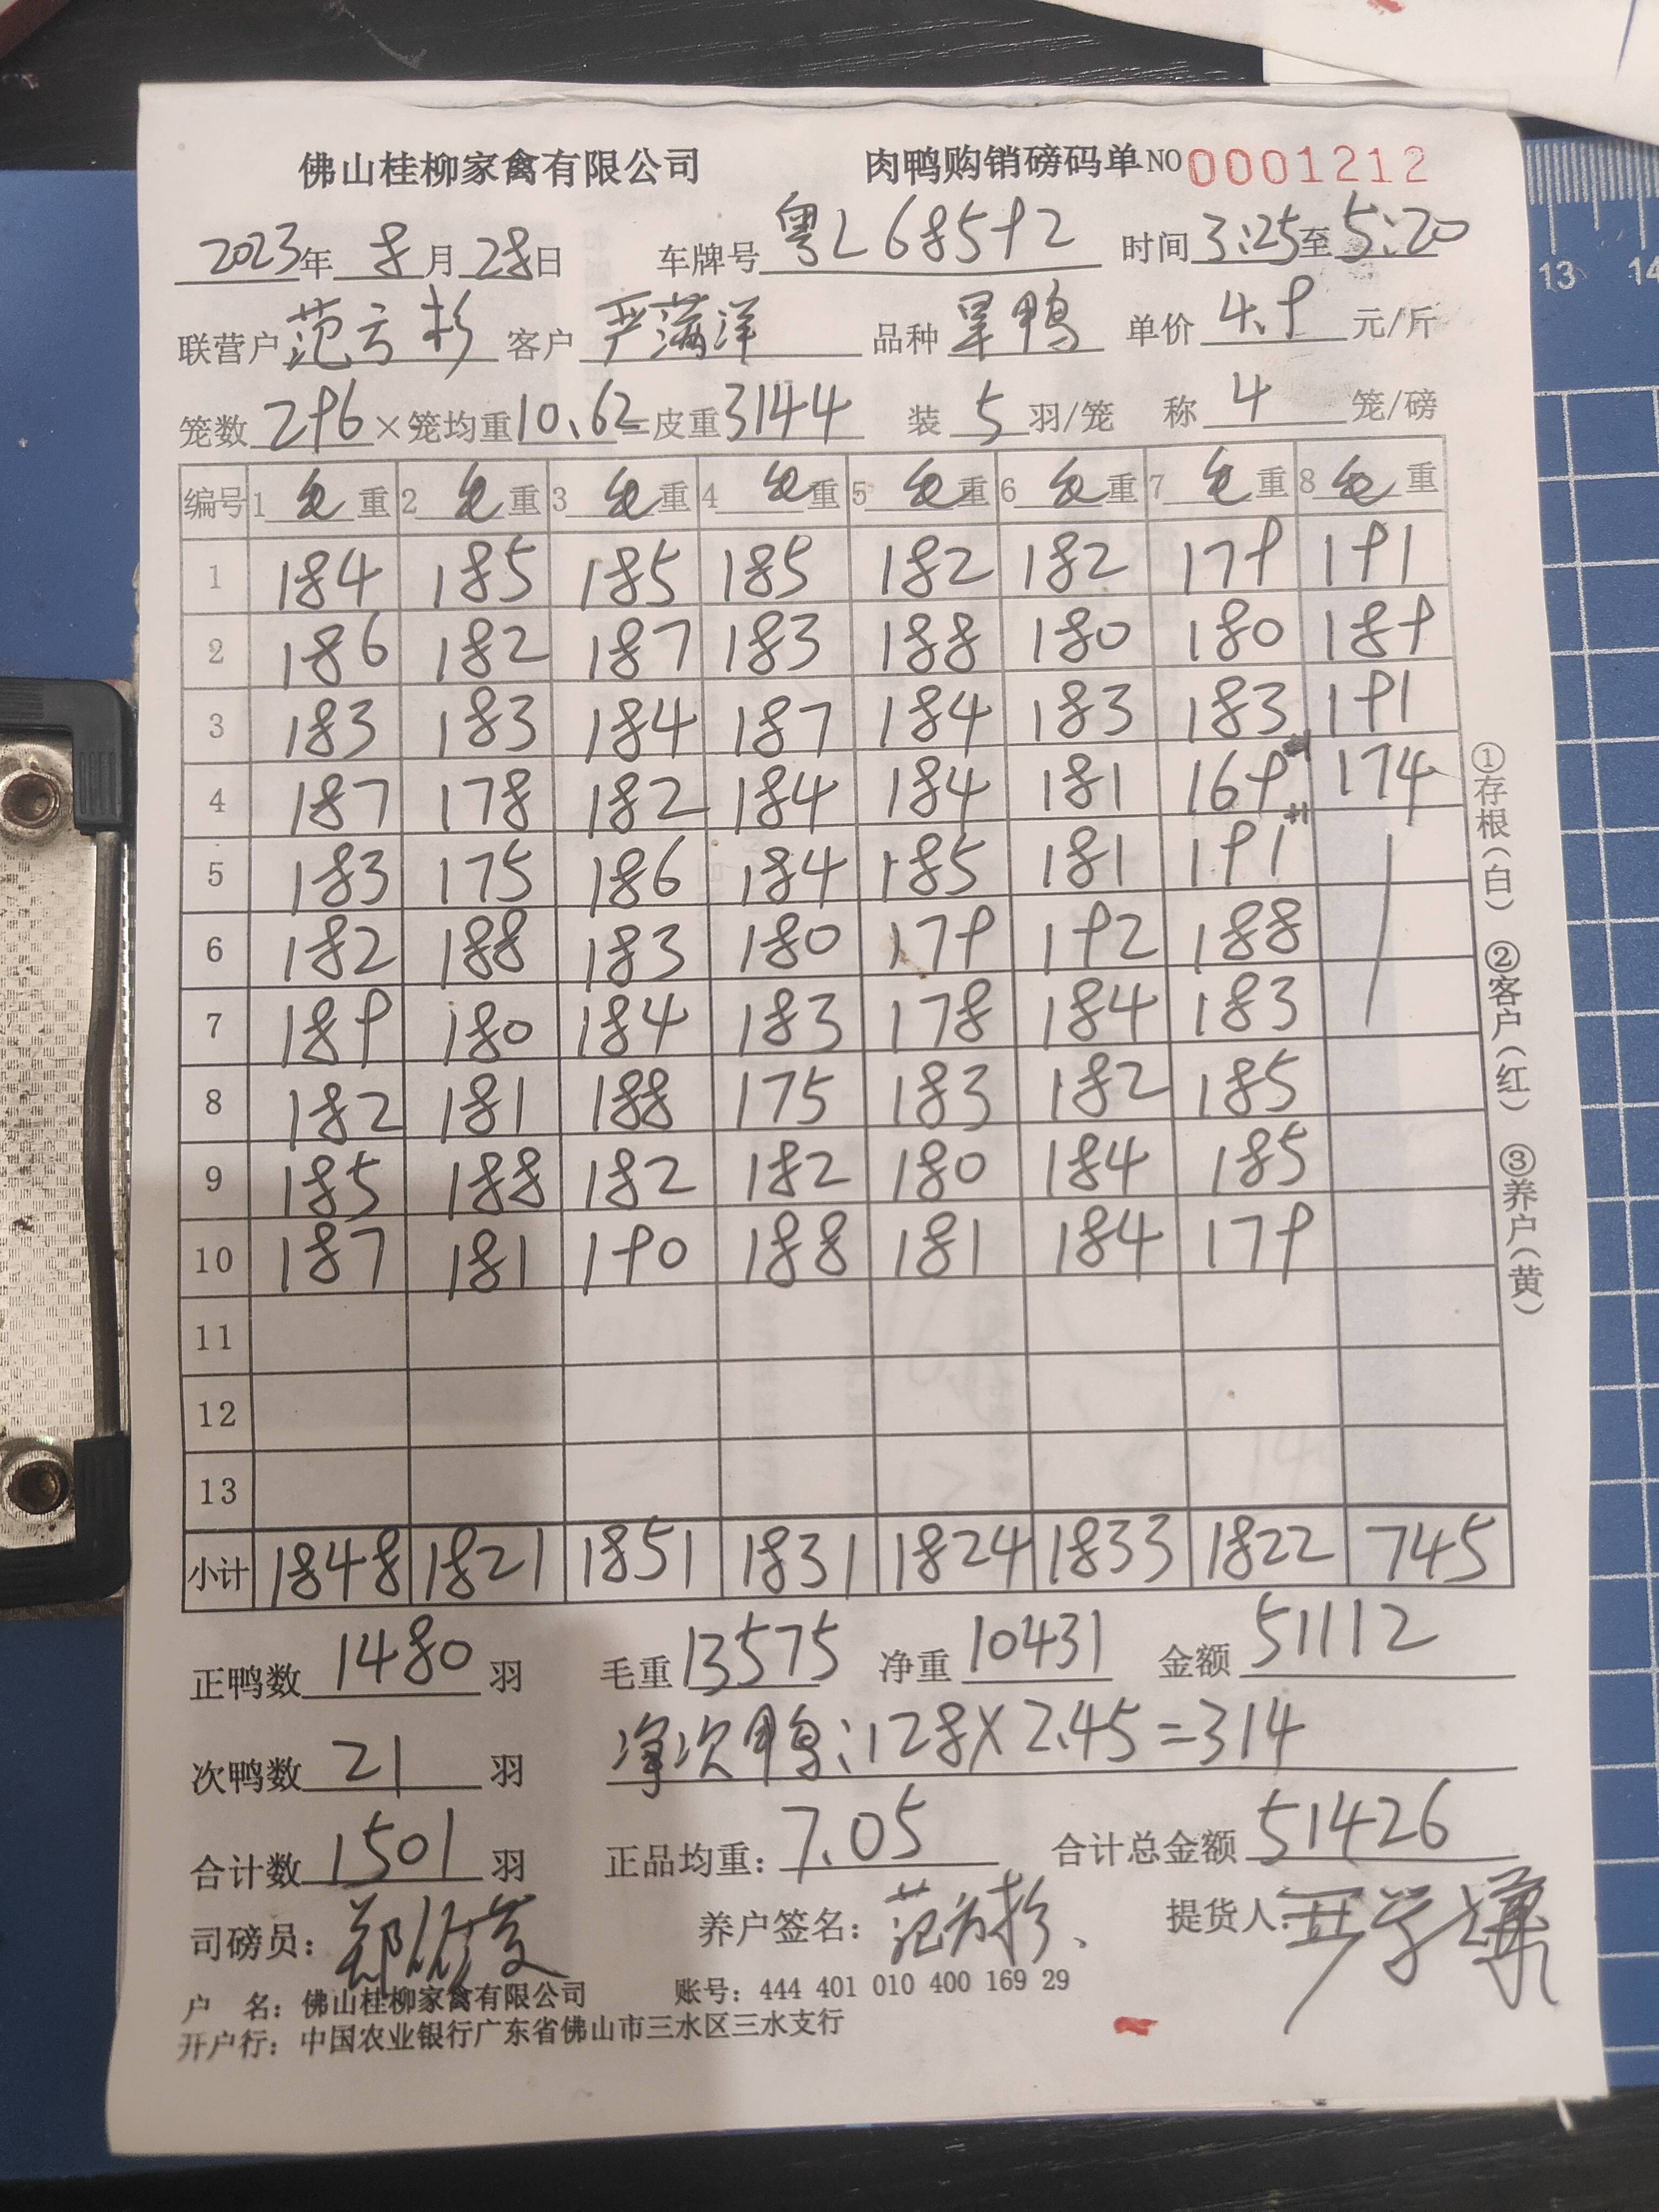 佛山桂柳家禽有限公司 肉鸭购销磅码单 NO 0001212
2023年 8月 28日 车牌号 粤L68592 时间 3:25至5:20
联营户 范方杉 客户 严满洋 品种 旱鸭 单价 4.9 元/斤
笼数 296 ×笼均重 10.62 =皮重 3144 装 5 羽/笼 称 4 笼/磅
编号 1 毛重 2 毛重 3 毛重 4 毛重 5 毛重 6 毛重 7 毛重 8 毛重
1 184 185 185 185 182 182 179 191
2 186 182 187 183 188 180 180 189
3 183 183 184 187 184 183 183 191
4 187 178 182 184 184 181 169 174
5 183 175 186 184 185 181 191
6 182 188 183 180 179 192 188
7 189 180 184 183 178 184 183
8 182 181 188 175 183 182 185
9 185 188 182 182 180 184 185
10 187 181 190 188 181 184 179
11
12
13
小计 1848 1821 1851 1831 1824 1833 1822 745
正鸭数 1480 羽 毛重 13575 净重 10431 金额 51112
次鸭数 21 羽 净次鸭:128×2.45=314
合计数 1501 羽 正品均重: 7.05 合计总金额 51426
司磅员: 郑 养户签名: 范方杉 提货人:
户 名: 佛山桂柳家禽有限公司 账号: 444 401 010 400 169 29
开户行: 中国农业银行广东省佛山市三水区三水支行
①存根(白) ②客户(红) ③养户(黄)
13 14